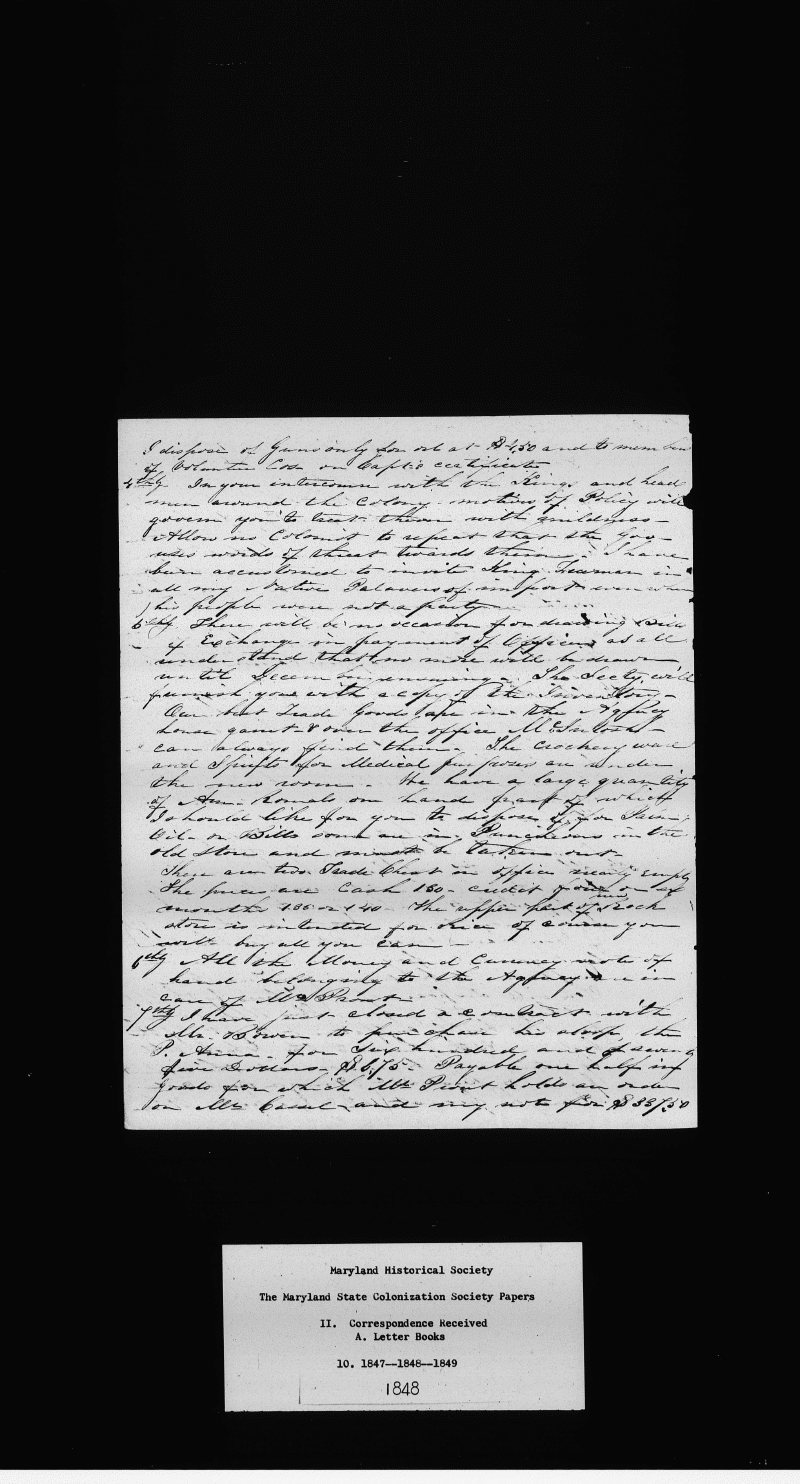 I dispose of Guns only for oil at $4,50 and to members
of Volunteer Cos. on Capt's certificate
4thly In your intercourse with the Kings and head
men around the Colony motives of Policy will
govern you to treat them with mildness -
Allow no Colonist to repeat that the Gov
uses words of threat towards them. I have
been accustomed to invite King Freeman in
all my Native Palavers of import even when
his people were not a party
5thly There will be no occasion for drawing Bills
of Exchange in payment of Officers as all
understand that no more will be drawn
until December ensuing. The Secty. will
furnish you with a copy of the Inventory -
Our best Trade Goods are in the Agency
house garret & over the office McIntosh
can always find them. The Crockery ware
and Spirits for Medical purposes are under
the new room. We have a large quantity
of Am. Romals on hand part of which
I should like for you to dispose of for
Oil or Bills some are in Puncheons in the
old Store and must be taken out
There are two Trade Chest in office nearly empty
The prices are Cash 130 - credit of or six
months 135 or 140 - The upper part of Rock
store is intended for rice of course you
will buy all you can -
6thly All the Money and Currency note of
hand belonging to the Agency are in
care of Mr. Prout
7thly I have just closed a contract with
Mr. Bowen to purchase his sloop, the
P. Anna. for Six hundred and Seventy
five Dollars $675 - Payable one half in
goods for which Mr. holds an order
on Mr. and my note for $337/50
Maryland Historical Society
The Maryland State Colonization Society Papers
II. Correspondence Received
A. Letter Books
10. 1847--1848--1849
1848